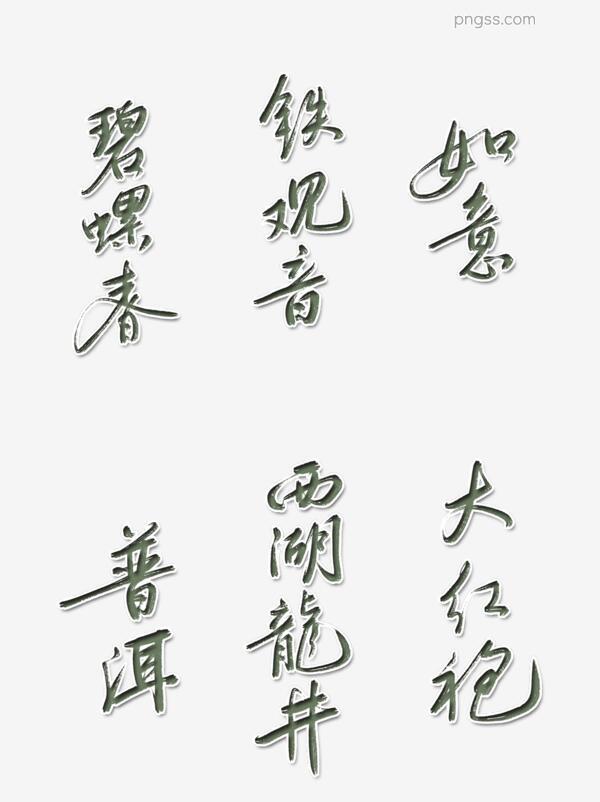 pngss.com
碧螺春
铁观音
如意
普洱
西湖龍井
大红袍